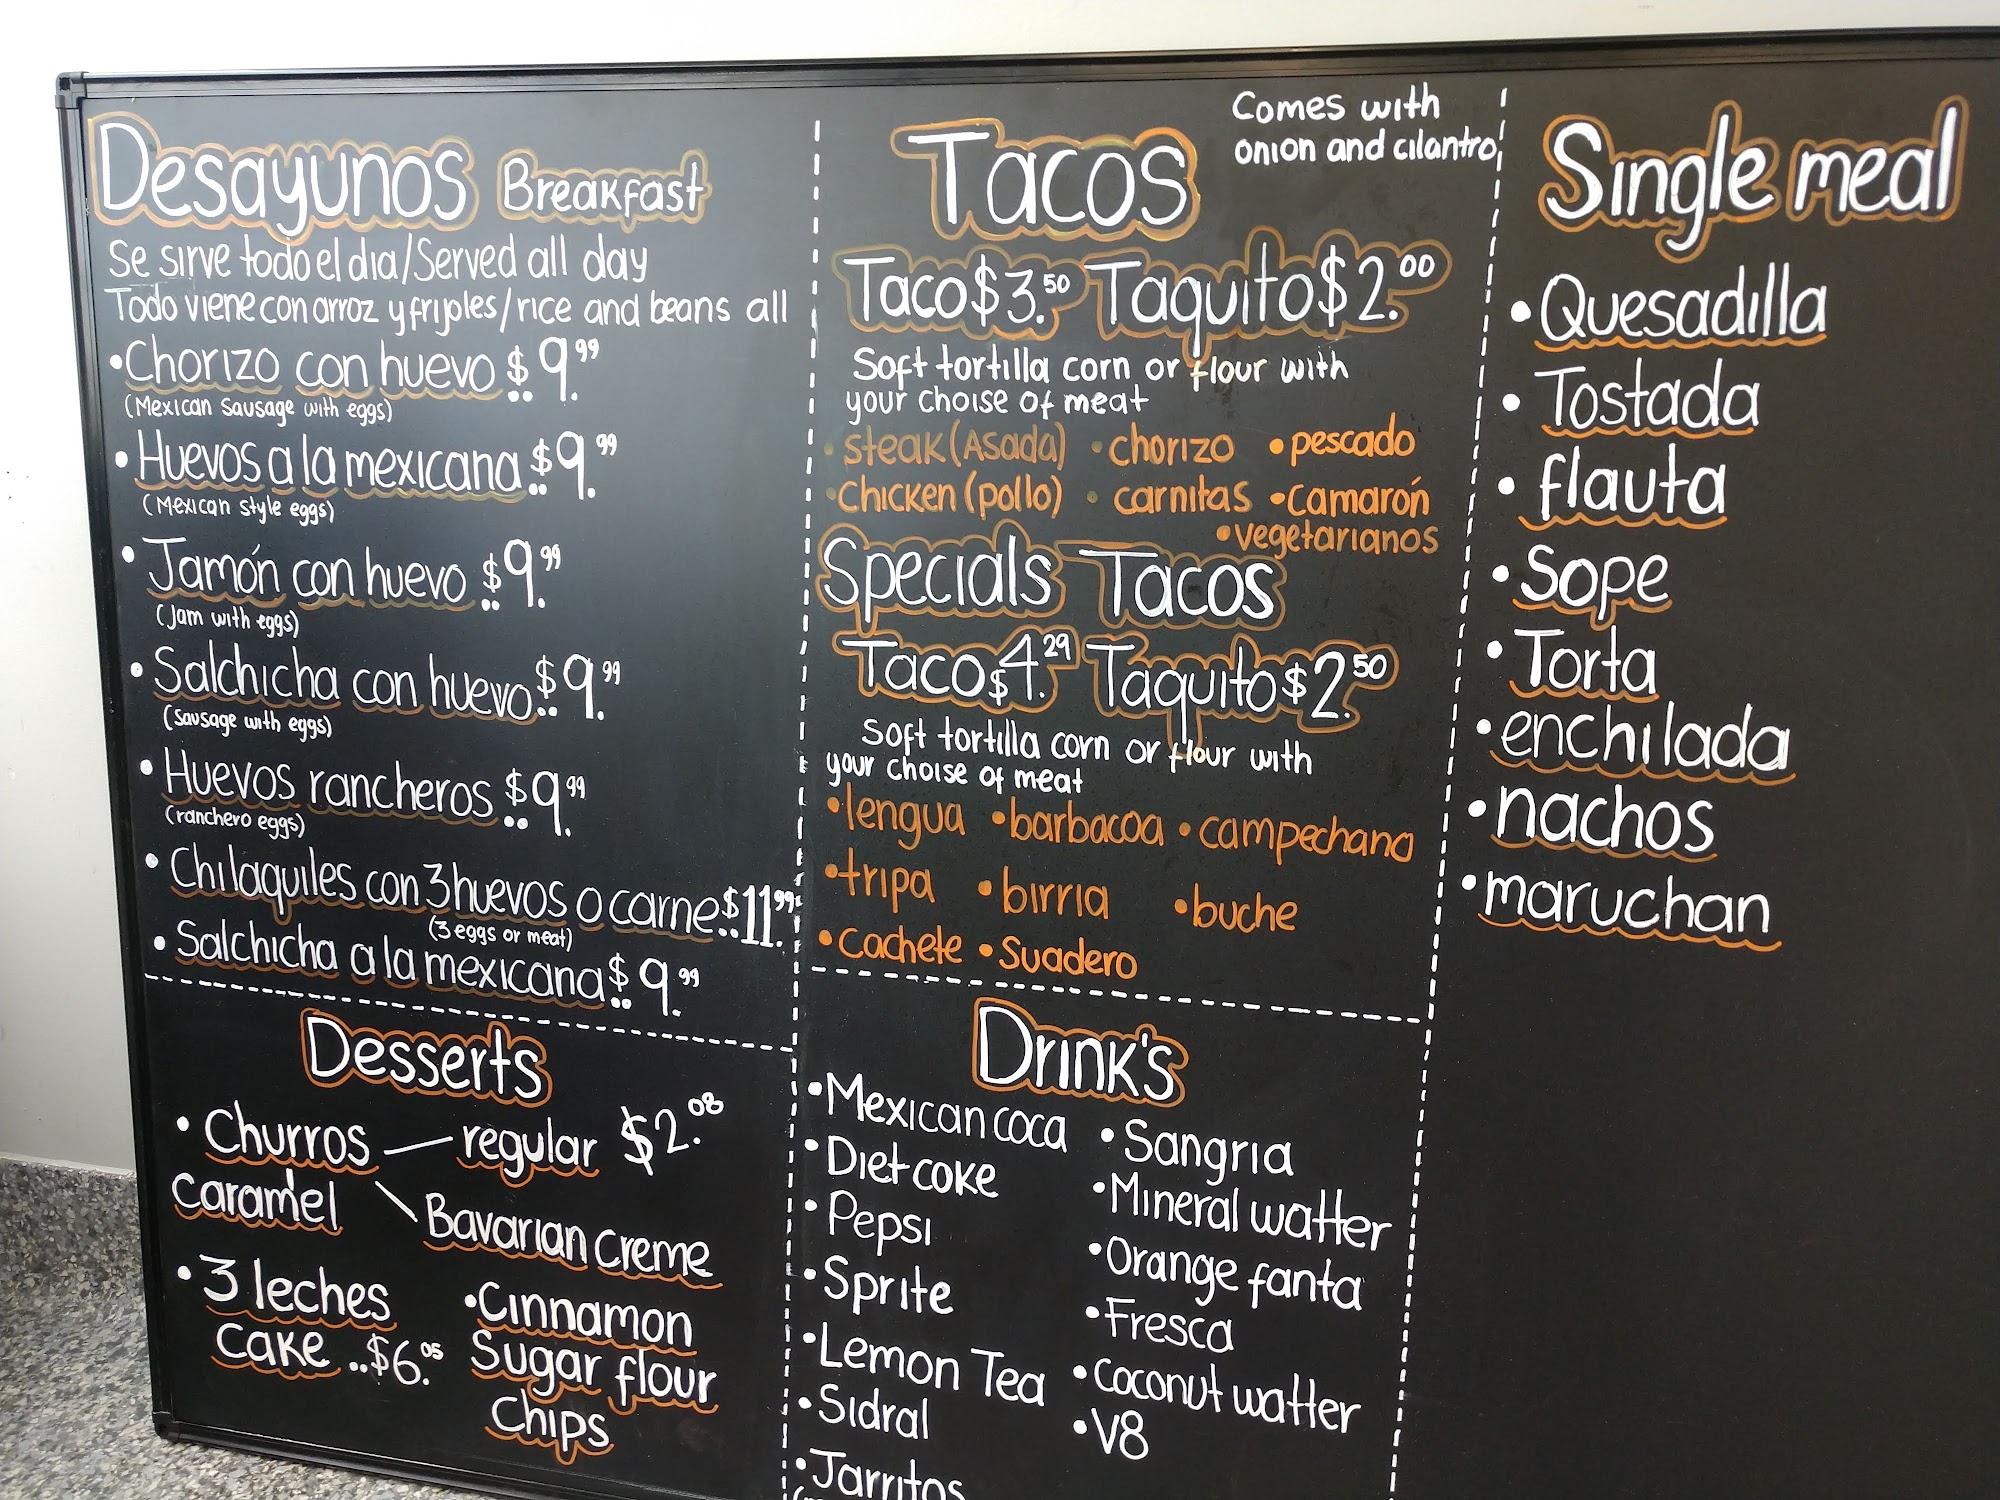 Desayunos Breakfast
Se sirve todo el dia/Served all day
Todo viene con arroz y frijoles/rice and beans all
•Chorizo con huevo $9.99
(Mexican Sausage with eggs)
•Huevos a la mexicana $9.99
(Mexican style eggs)
•Jamón con huevo $9.99
(Jam with eggs)
•Salchicha con huevo $9.99
(Sausage with eggs)
•Huevos rancheros $9.99
(ranchero eggs)
•Chilaquiles con 3 huevos o carne $11.99
(3 eggs or meat)
•Salchicha a la mexicana $9.99
Desserts
•Churros regular $2.08
caramel Bavarian creme
•3 leches
cake ..$6.05
•Cinnamon
Sugar flour
Chips
Tacos
Comes with
onion and cilantro
Taco $3.50 Taquito $2.00
Soft tortilla corn or flour with
your choise of meat
•steak (Asada) •chorizo •pescado
•chicken (pollo) •carnitas •camarón
•vegetarianos
Specials Tacos
Taco $4.29 Taquito $2.50
Soft tortilla corn or flour with
your choise of meat
•lengua •barbacoa •campechana
•tripa •birria •buche
•cachete •suadero
Drink's
•Mexican coca
•Diet coke
•Pepsi
•Sprite
•Lemon Tea
•Sidral
•Jarritos
•Sangria
•Mineral watter
•Orange fanta
•Fresca
•Coconut watter
•V8
Single meal
•Quesadilla
•Tostada
•flauta
•Sope
•Torta
•enchilada
•nachos
•maruchan